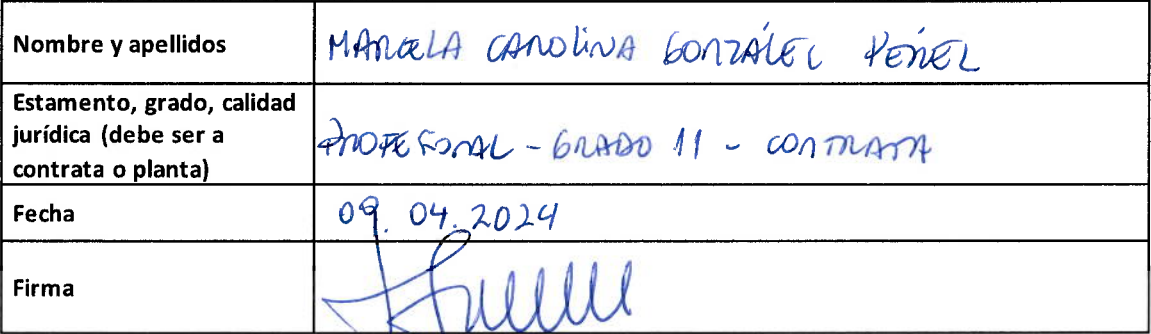 Nombre y apellidos
MARCELA CAROLINA GONZÁLEZ
Estamento, grado, calidad
jurídica (debe ser a
contrata o planta)
PROFESIONAL - GRADO 11 - CONTRATA
Fecha
09.04.2024
Firma